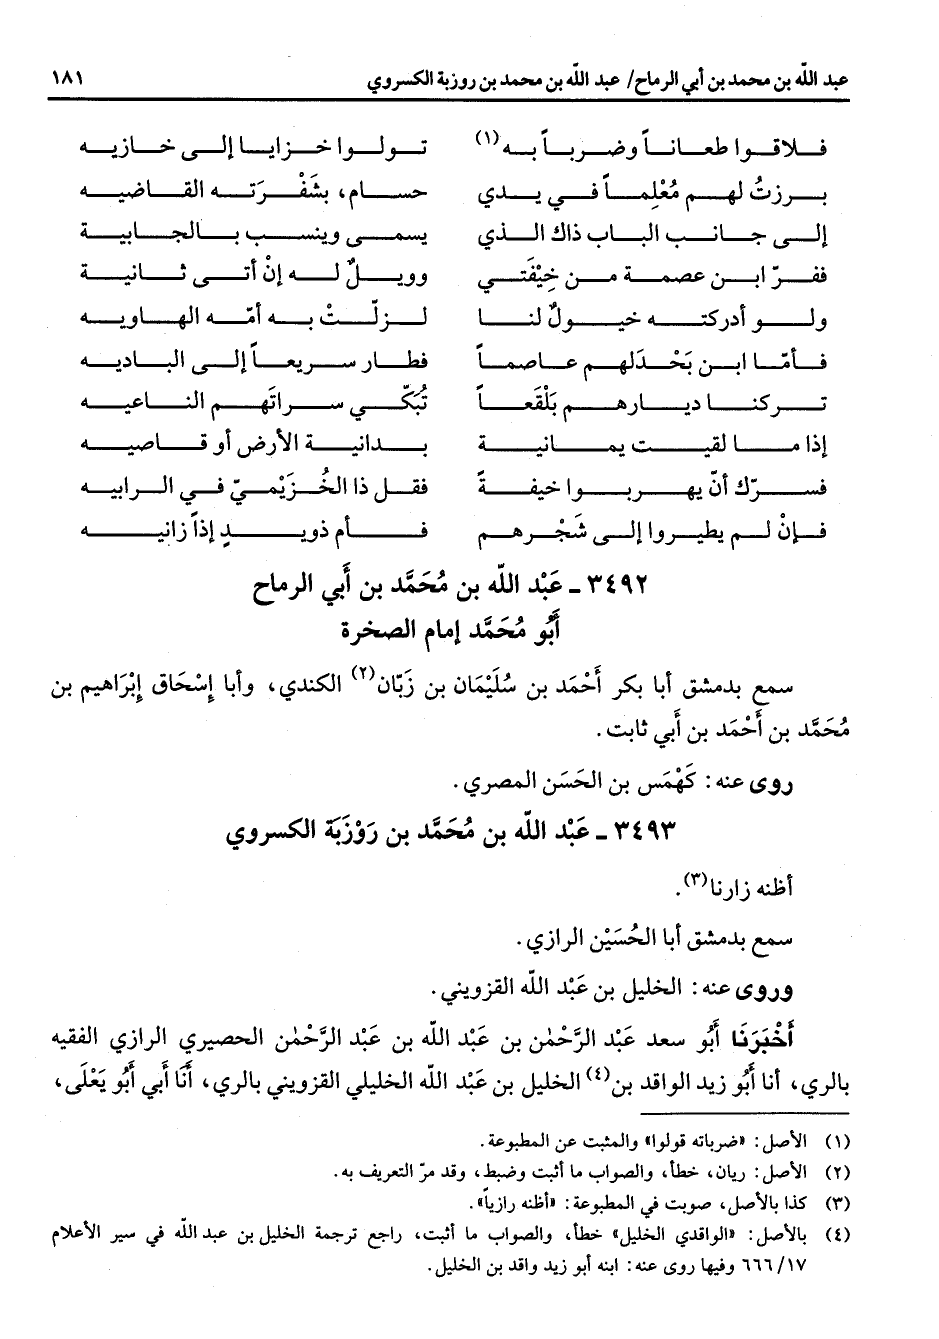 عبد اللّه بن محمد بن أبي الرماح/ عبد اللّه بن محمد بن روزبة الكسروي ١٨١
فلاقوا طعاناً وضرباً به(١) تولوا خزايا إلى خازيه
برزتُ لهم مُعْلِماً في يدي حسام، بشَفْرَته القاضيه
إلى جانب الباب ذاك الذي يسمى وينسب بالجابية
ففرّ ابن عصمة من خِيْفَتي وويلٌ له إنْ أتى ثانية
ولو أدركته خيولٌ لنا لزلّتْ به أمّه الهاويه
فأمّا ابن بَحْدَلهم عاصماً فطار سريعاً إلى الباديه
تركنا ديارهم بَلْقَعاً تُبَكّي سراتَهم الناعيه
إذا ما لقيت يمانية بدانية الأرض أو قاصيه
فسرّك أنّ يهربوا خيفةً فقل ذا الخُزَيْميّ في الرابيه
فإنْ لم يطيروا إلى شَجْرهم فأم ذويدٍ إذاً زانيه
٣٤٩٢ ـ عَبْد اللّه بن مُحَمَّد بن أَبي الرماح
أَبُو مُحَمَّد إمام الصخرة
سمع بدمشق أبا بكر أَحْمَد بن سُلَيْمَان بن زَبّان(٢) الكندي، وأبا إِسْحَاق إِبْرَاهيم بن
مُحَمَّد بن أَحْمَد بن أَبي ثابت.
روى عنه: كَهْمَس بن الحَسَن المصري.
٣٤٩٣ ـ عَبْد اللّه بن مُحَمَّد بن رَوْزبَة الكسروي
أظنه زارنا(٣).
سمع بدمشق أبا الحُسَيْن الرازي.
وروى عنه: الخليل بن عَبْد اللّه القزويني.
أَخْبَرَنَا أَبُو سعد عَبْد الرَّحْمٰن بن عَبْد اللّه بن عَبْد الرَّحْمٰن الحصيري الرازي الفقيه
بالري، أنا أَبُو زيد الواقد بن(٤) الخليل بن عَبْد اللّه الخليلي القزويني بالري، أَنَا أَبي أَبُو يَعْلَى،
(١) الأصل: «ضرباته قولوا» والمثبت عن المطبوعة.
(٢) الأصل: ريان، خطأ، والصواب ما أثبت وضبط، وقد مرّ التعريف به.
(٣) كذا بالأصل، صوبت في المطبوعة: «أظنه رازياً».
(٤) بالأصل: «الواقدي الخليل» خطأ، والصواب ما أثبت، راجع ترجمة الخليل بن عبد اللّه في سير الأعلام
١٧/ ٦٦٦ وفيها روى عنه: ابنه أبو زيد واقد بن الخليل.